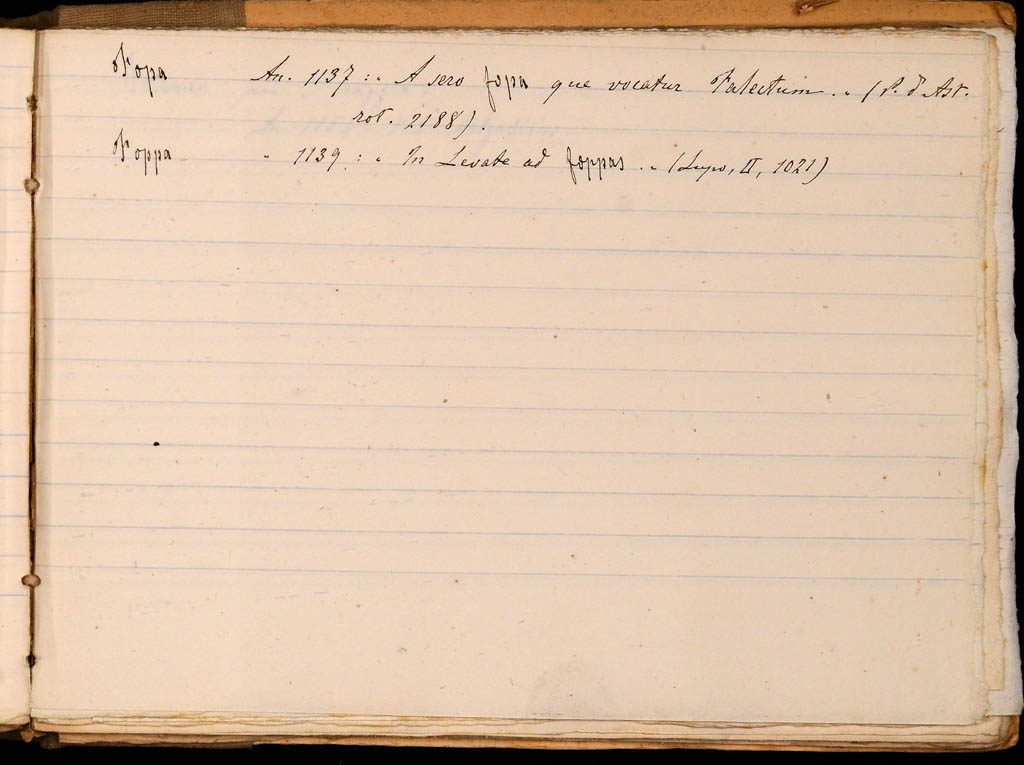 Fopa An. 1137 : " A sero fopa que vocatur Falectum . " (P. d' Ast.
rot. 2188).
Foppa " 1139 : " In Levate ad foppas . " (Lupo, II, 1021)